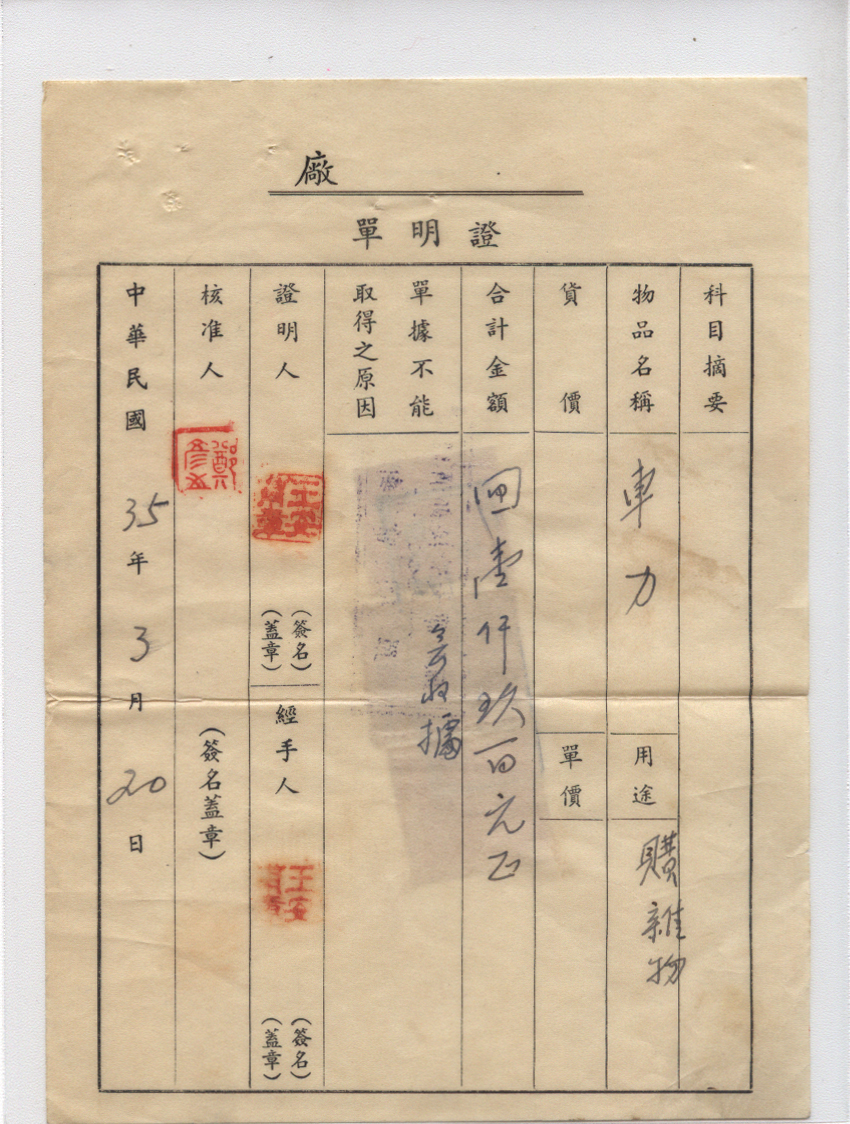 廠
證明單
科目摘要
物品名稱
車力
用途
購雜物
貨價
單價
合計金額
四壹仟玖百元正
單據不能
取得之原因
收據
證明人
(簽名
蓋章)
經手人
(簽名
蓋章)
核准人
(簽名蓋章)
中華民國35年3月20日